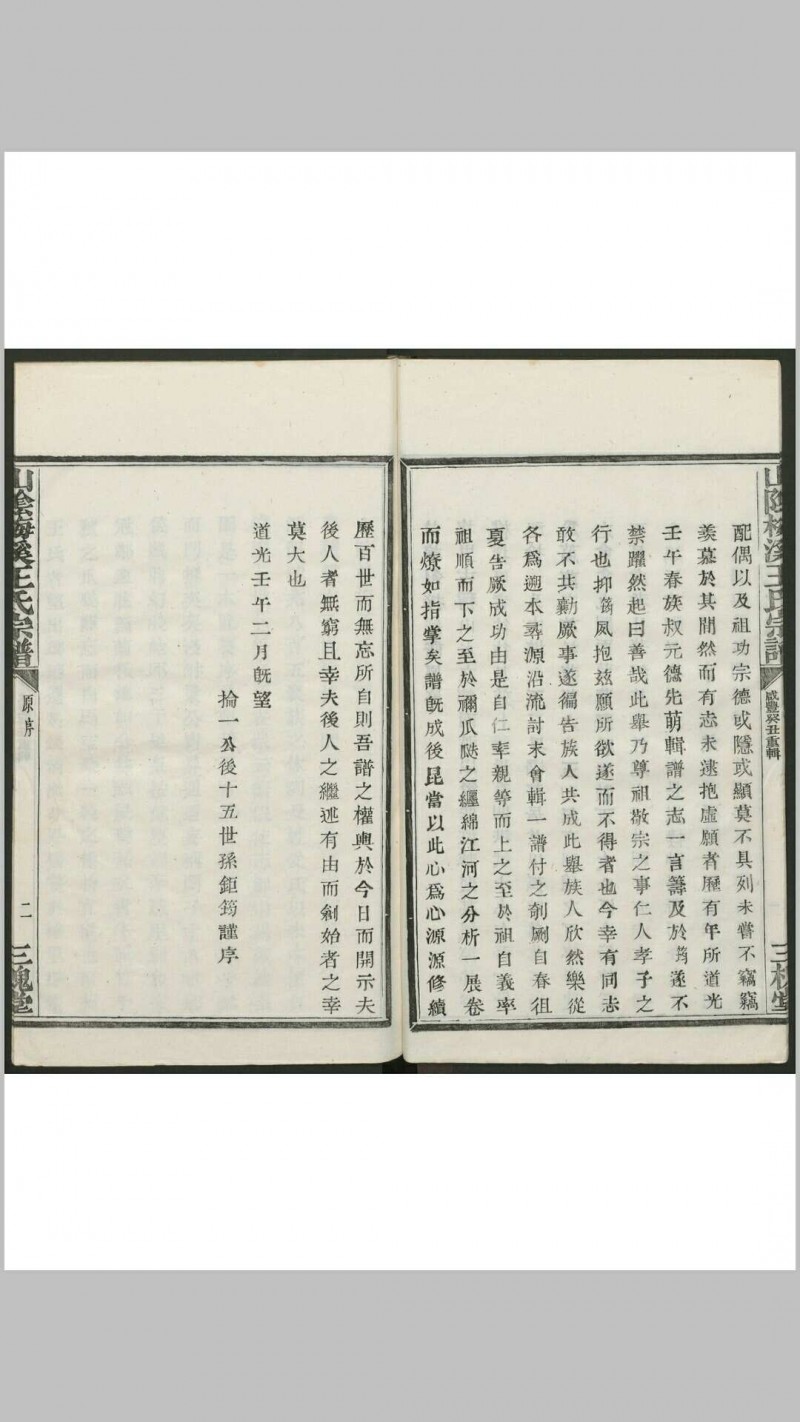 山陰梅溪王氏宗譜
咸豐癸丑重輯
三槐堂
配偶以及祖功宗德或隱或顯莫不具列未嘗不竊竊
羨慕於其間然而有志未逮抱虛願者歷有年所道光
壬午春族叔元德先萌輯譜之志一言籌及於筠遂不
禁躍然起曰善哉此舉乃尊祖敬宗之事仁人孝子之
行也抑筠夙抱茲願所欲遂而不得者也今幸有同志
敢不共勷厥事遂徧告族人共成此舉族人欣然樂從
各爲遡本尋源沿流討末會輯一譜付之剞劂自春徂
夏告厥成功由是自仁率親等而上之至於祖自義率
祖順而下之至於禰瓜瓞之纏綿江河之分析一展卷
而燎如指掌矣譜旣成後昆當以此心爲心源源修續
歷百世而無忘所自則吾譜之權輿於今日而開示夫
後人者無窮且幸夫後人之繼述有由而剏始者之幸
莫大也
道光壬午二月旣望
掄一公後十五世孫鉅筠謹序
山陰梅溪王氏宗譜
原序
二
三槐堂